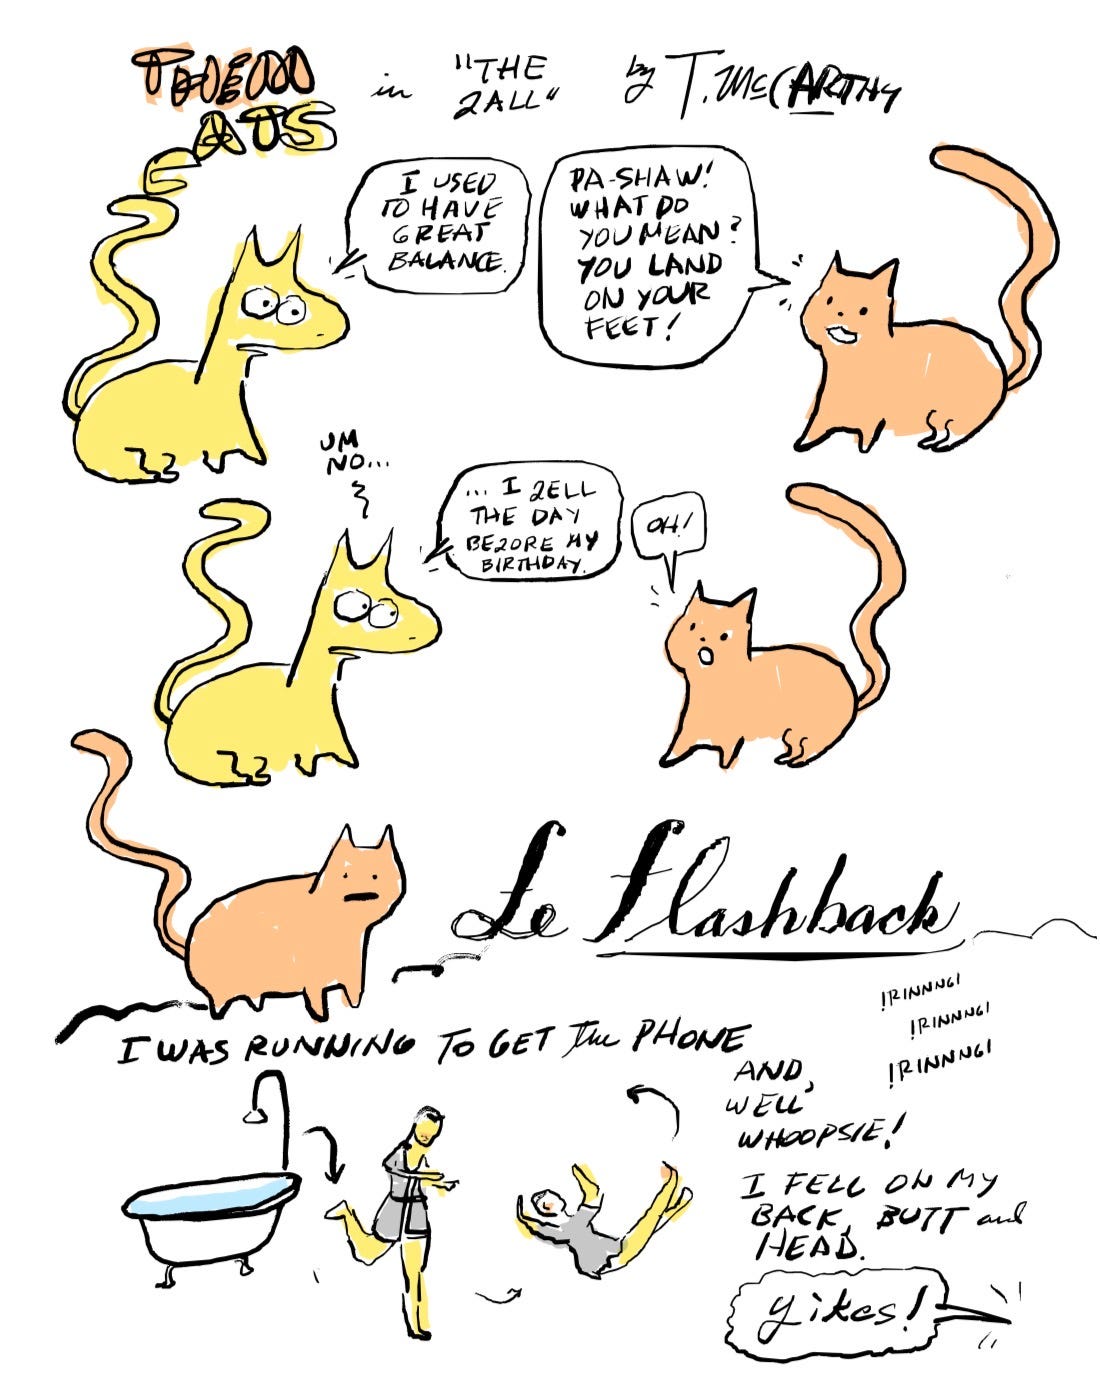 THEM
CATS
in
"THE
2ALL"
by T. McCARTHY
I USED
TO HAVE
GREAT
BALANCE.
PA-SHAW!
WHAT DO
YOU MEAN?
YOU LAND
ON YOUR
FEET!
UM
NO...
... I 2ELL
THE DAY
BE2ORE MY
BIRTHDAY.
OH!
Le Flashback
!RINNNG!
!RINNNG!
!RINNNG!
I WAS RUNNING TO GET the PHONE
AND,
WELL
WHOOPSIE!
I FELL ON MY
BACK, BUTT and
HEAD.
Yikes!